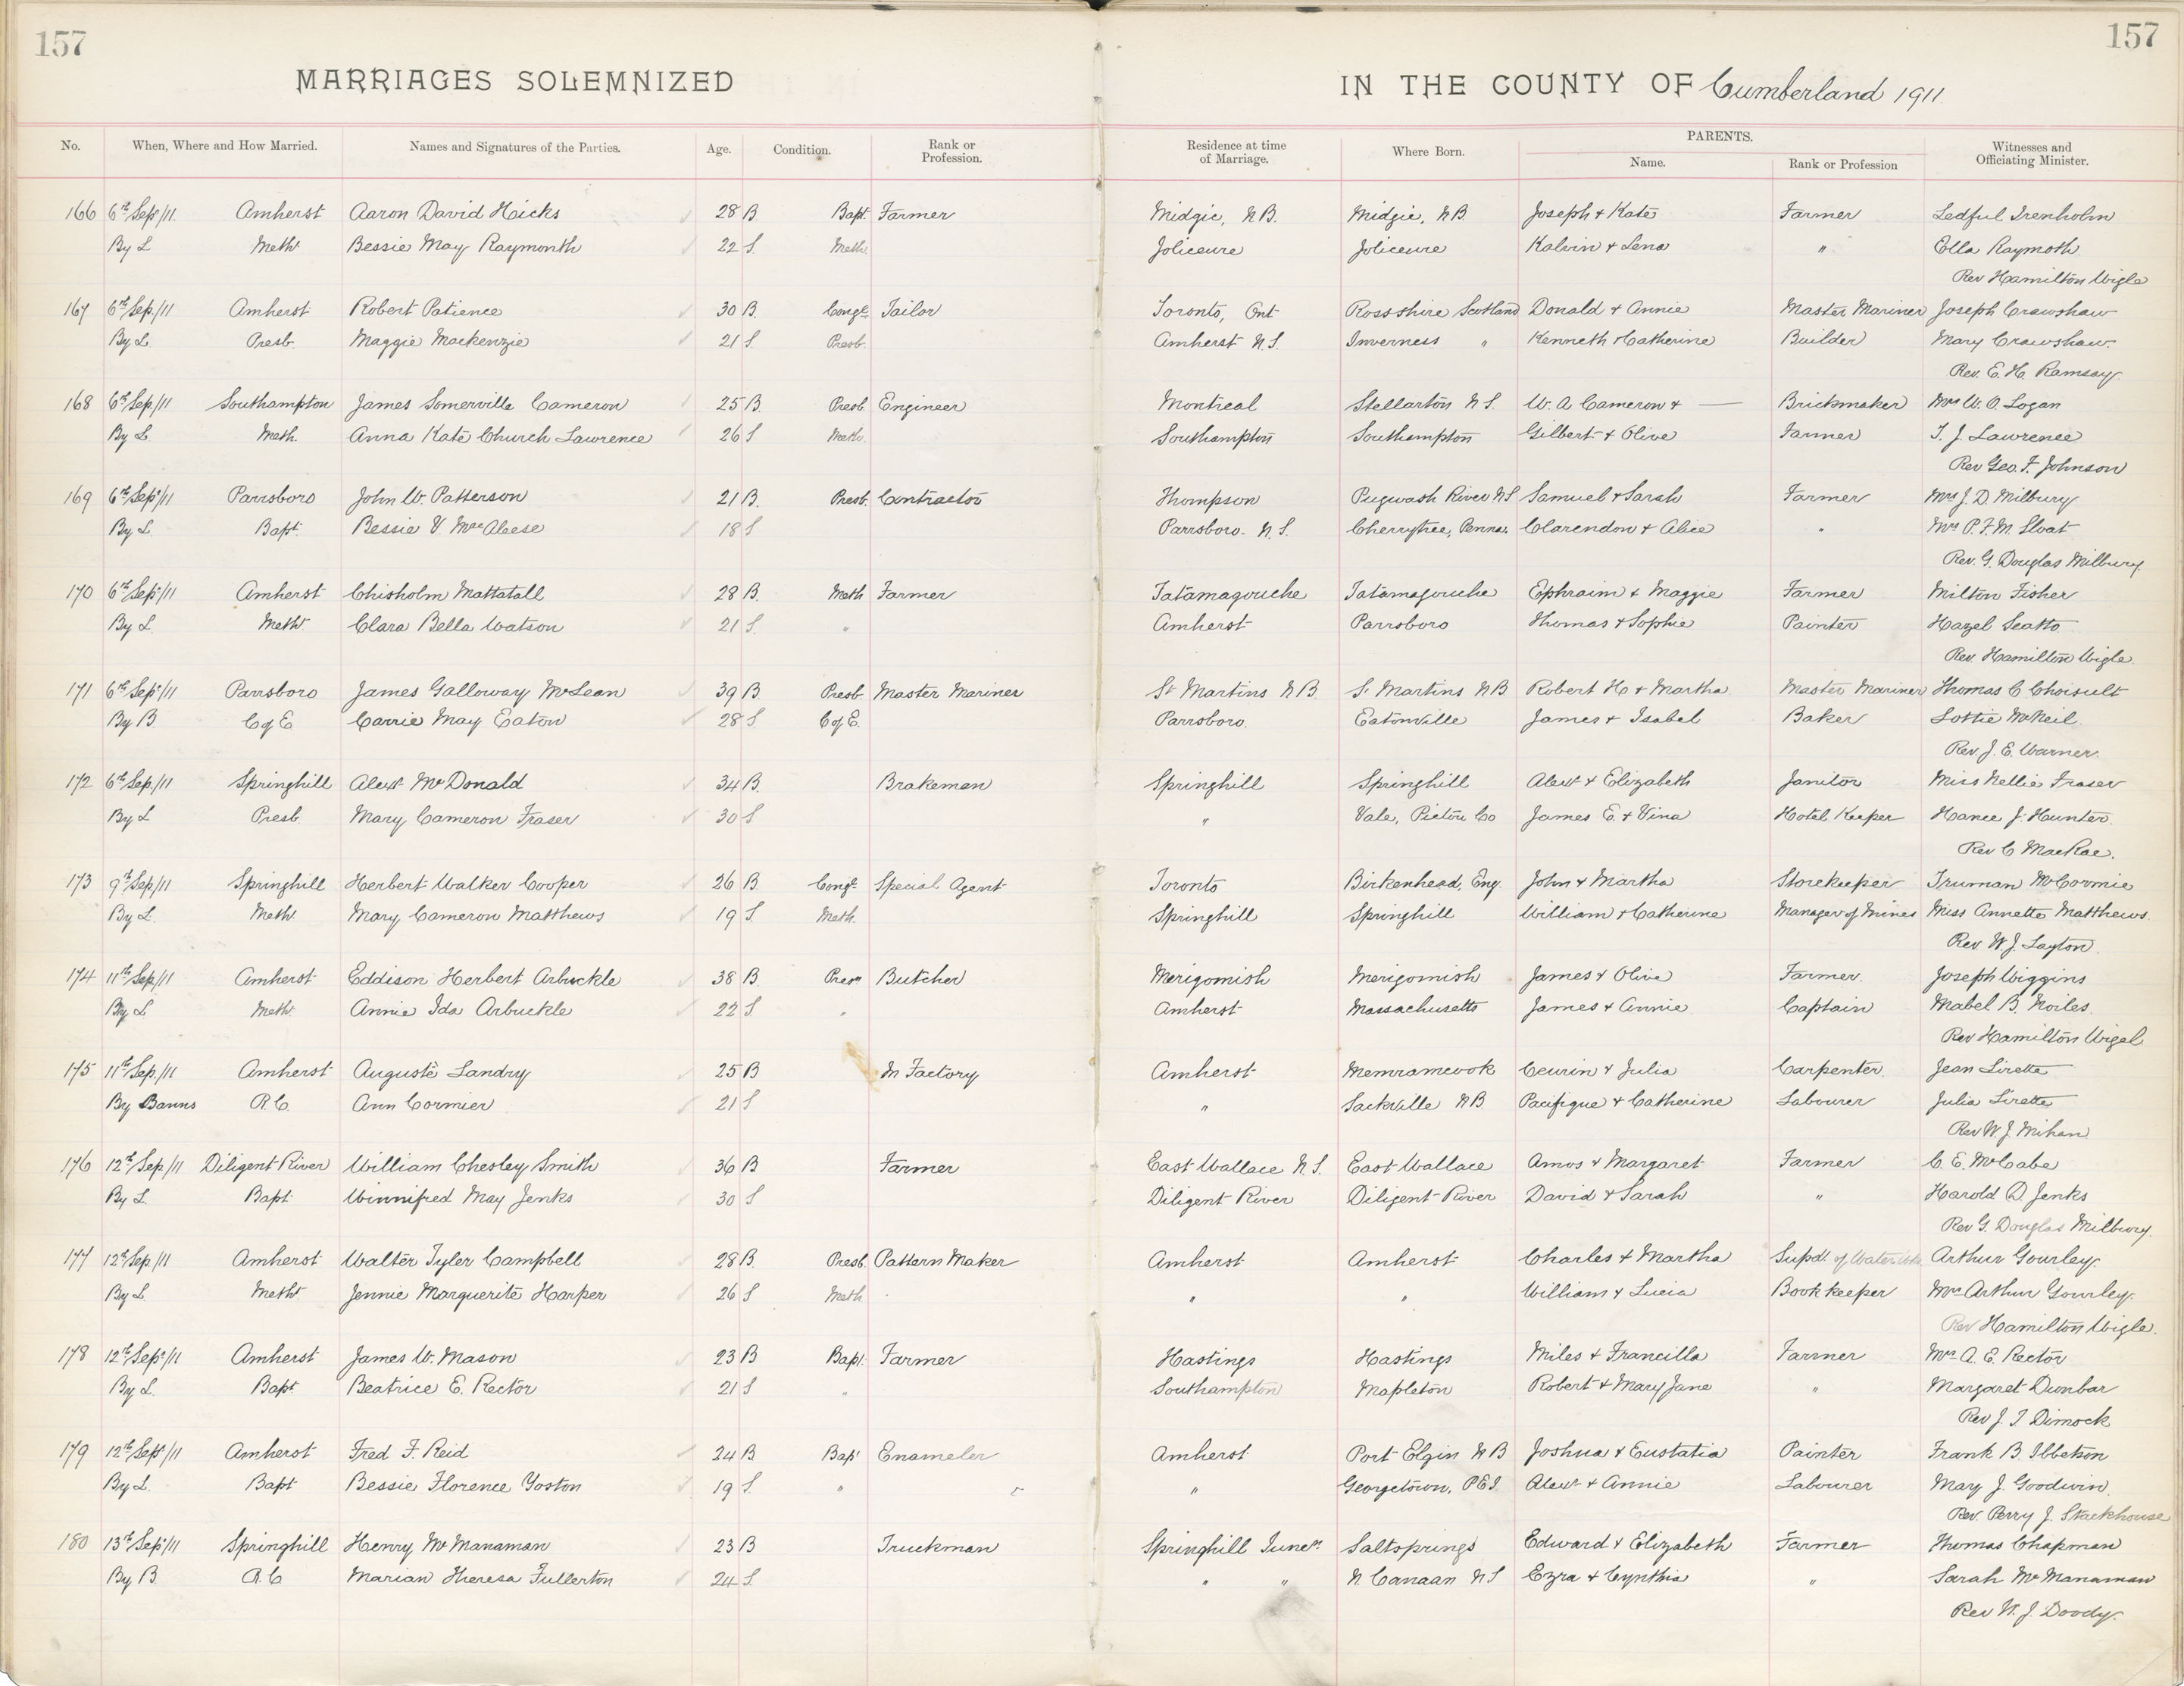 157
157
MARRIAGES SOLEMNIZED IN THE COUNTY OF Cumberland 1911
No. When, Where and How Married. Names and Signatures of the Parties. Age. Condition. Rank or Profession. Residence at time of Marriage. Where Born. PARENTS. Name. Rank or Profession Witnesses and Officiating Minister.
166 6th Sep/11 Amherst Aaron David Hicks 28 B. Bapt. Farmer Midgic, N.B. Midgic, N.B. Joseph & Kate Farmer Ledful Trenholm
By L Meth Bessie May Raymonth 22 S. Meth Joliceure Joliceure Kalvin & Lena " Ella Raymoth
Rev Hamilton Wigle
167 6th Sep./11 Amherst Robert Patience 30 B. Congl. Tailor Toronto, Ont Rossshire Scotland Donald & Annie Master Mariner Joseph Crawshaw
By L. Presb. Maggie Mackenzie 21 S. Presb. Amherst N.S. Inverness " Kenneth & Catherine Builder Mary Crawshaw.
Rev. E. H. Ramsay.
168 6th Sep./11 Southampton James Somerville Cameron 25 B. Presb. Engineer Montreal Stellarton N.S. W. A Cameron & — Brickmaker Mrs W. O. Logan
By L Meth. Anna Kate Church Lawrence 26 S Meth. Southampton Southampton Gilbert & Olive Farmer T. J. Lawrence
Rev Geo. F. Johnson
169 6th Sep/11 Parrsboro John W. Patterson 21 B. Presb. Contractor Thompson Pugwash River N.S Samuel & Sarah Farmer Mrs J. D Milbury
By L Bapt. Bessie V. MacAleese 18 S Parrsboro. N.S. Cherrytree, Penna. Clarendon & Alice " Mrs P. F. M. Sloat
Rev. G. Douglas Milbury
170 6th Sep/11 Amherst Chisholm Mattatall 28 B. Meth Farmer Tatamagouche Tatamagouche Ephraim & Maggie Farmer Milton Fisher
By L. Meth Clara Bella Watson 21 S. " Amherst Parrsboro Thomas & Sophie Painter Hazel
Rev. Hamilton Wigle.
171 6th Sep/11 Parrsboro James Galloway McLean 39 B. Presb Master Mariner St Martins N.B St Martins N B Robert H. & Martha Master Mariner Thomas C
By B C of E Carrie May Eaton 28 S C of E. Parrsboro. Eatonville James & Isabel Baker Lottie McNeil
Rev. J. E. Warner.
172 6th Sep./11 Springhill Alexr McDonald 34 B. Brakeman Springhill Springhill Alexr & Elizabeth Janitor Miss Nellie Fraser
By L Presb Mary Cameron Fraser 30 S " Vale, Pictou Co James E. & Vina Hotel Keeper Hance J. Hunter.
Rev C MacRae.
173 9th Sep/11 Springhill Herbert Walker Cooper 26 B. Congl. Special Agent Toronto Birkenhead, Eng. John & Martha Storekeeper Truman McCormie
By L. Meth Mary Cameron Matthews 19 S. Meth. Springhill Springhill William & Catherine Manager of Mines Miss Annette Matthews.
Rev W. J. Layton.
174 11th Sep./11 Amherst Eddison Herbert Arbuckle 38 B. Butcher Merigomish Merigomish James & Olive Farmer. Joseph Wiggins
By L Meth Annie Ida Arbuckle 22 S " Amherst Massachusetts James & Annie Captain Mabel B. Noiles.
Rev Hamilton Wigel
175 11th Sep./11 Amherst Auguste Landry 25 B In Factory Amherst Memramcook & Julia Carpenter. Jean Lirette
By Banns R.C. Ann Cormier 21 S " Sackville N B Pacifique & Catherine Labourer Julia Lirette
Rev W. J. Mihan
176 12th Sep/11 Diligent River William Chesley Smith 36 B Farmer East Wallace N.S. East Wallace Amos & Margaret Farmer C. E. McCabe
By L. Bapt. Winnifred May Jenks 30 S Diligent River Diligent River David & Sarah " Harold D. Jenks
Rev G. Douglas Milbury.
177 12th Sep./11 Amherst Walter Tyler Campbell 28 B. Presb. Pattern Maker Amherst Amherst Charles & Martha Supdt. of Water Arthur Gourley
By L. Meth. Jennie Marguerite Harper 26 S Meth " " William & Lucia Book keeper Mrs Arthur Gourley.
Rev Hamilton Wigle.
178 12th Sep/11 Amherst James W. Mason 23 B Bapt. Farmer Hastings Hastings Miles & Francilla Farmer Mrs A. E. Rector
By L. Bapt Beatrice E. Rector 21 S " Southampton Mapleton Robert & Mary Jane " Margaret Dunbar
Rev J. T Dimock
179 12th Sep/11 Amherst Fred F. Reid 24 B Bap Enameler Amherst Port Elgin N B Joshua & Eustatia Painter Frank B. Ibbetson
By L. Bapt Bessie Florence Yoston 19 S. " " Georgetown, P.E.I. Alexr & Annie Labourer Mary J. Goodwin.
Rev. Perry J. Stackhouse
180 13th Sep/11 Springhill Henry McManaman 23 B Truckman Springhill Juncn. Saltsprings Edward & Elizabeth Farmer Thomas Chapman
By B. R.C Marian Theresa Fullerton 24 S. " " N. Canaan N S Ezra & Cynthia " Sarah McManaman
Rev W. J. Doody.